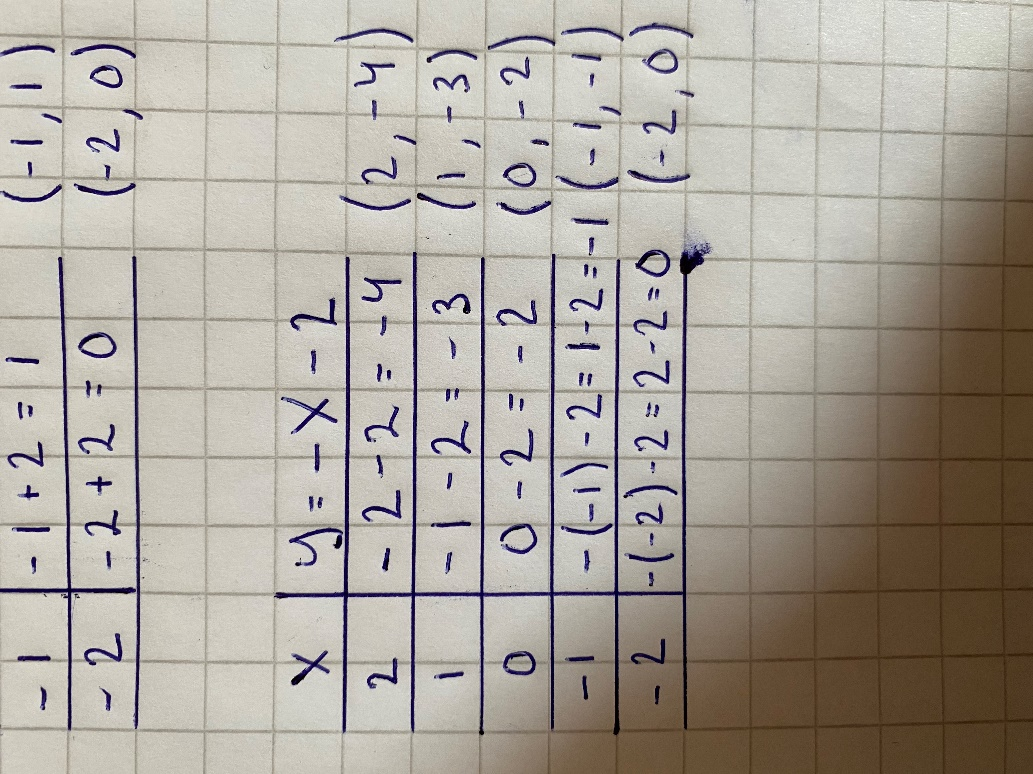 -1 -1+2=1 (-1,1)
-2 -2+2=0 (-2,0)
x y=-x-2
2 -2-2=-4 (2,-4)
1 -1-2=-3 (1,-3)
0 0-2=-2 (0,-2)
-1 -(-1)-2=1-2=-1 (-1,-1)
-2 -(-2)-2=2-2=0 (-2,0)